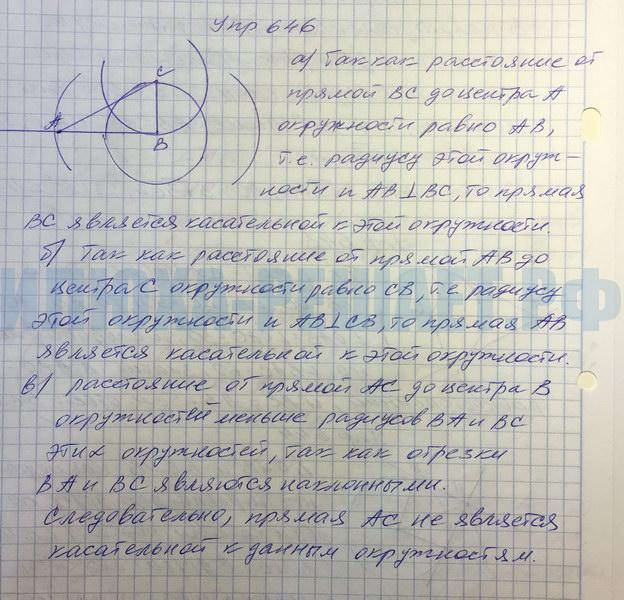 Упр 646
а) Так как расстояние от
прямой BC до центра A
окружности равно AB,
т.е. радиусу этой окруж-
ности и AB⊥BC, то прямая
BC является касательной к этой окружности.
б) Так как расстояние от прямой AB до
центра C окружности равно CB, т.е радиусу
этой окружности и AB⊥CB, то прямая AB
является касательной к этой окружности.
в) расстояние от прямой AC до центра B
окружностей меньше радиусов BA и BC
этих окружностей, так как отрезки
BA и BC являются наклонными.
Следовательно, прямая AC не является
касательной к данным окружностям.
C
A
B